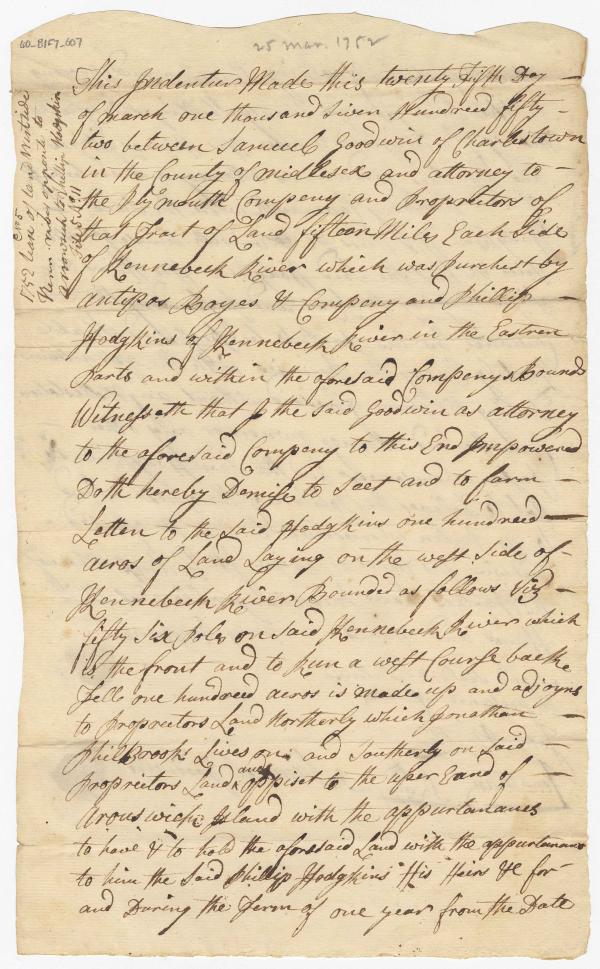 60_B1F7_607
25 Mar. 1752
This Indenture Made this twenty fifth Day
of march one thousand Seven Hundred fifty
two between Samuel Goodwin of Charlestown
in the County of midlesex and attorney to
the Plymouth Compeny and Propriters of
that Tract of Land fifteen Miles Each Side
of Kennebeck River which was Purchest by
antipas Boyes & Compeny and Phillip
Hodgkins of Kennebeck River in the Eastren
Parts and within the aforesaid Compenys Bounds
Witnesseth that I the said Goodwin as attorney
to the aforesaid Compeny to this End Impowered
Doth hereby Demise to Leet and to farm
Letten to the Said Hodgkins one hundred
acros of Land Laying on the west Side of
Kennebeck River Bounded as follows Viz
fifty Six Poles on said Kennebeck River which
is the front and to Run a west Course back
Tell one hundred acros is made up and adjoyns
to Propriectors Land Northerly which Jonathan
Philbrooks Lives on and Southerly on Said
Propriectors Land and oppiset to the uper Eand of
arouswick Island with the appurtanances
to have & to hold the aforesaid Land with the appurtanans
to him the Said Phillip Hodgkins His Heirs &c for
and During the Term of one year from the Date
1752 lease of land West side
Kenn. river opposite to
Arrowsick to Phillip Hodgkin